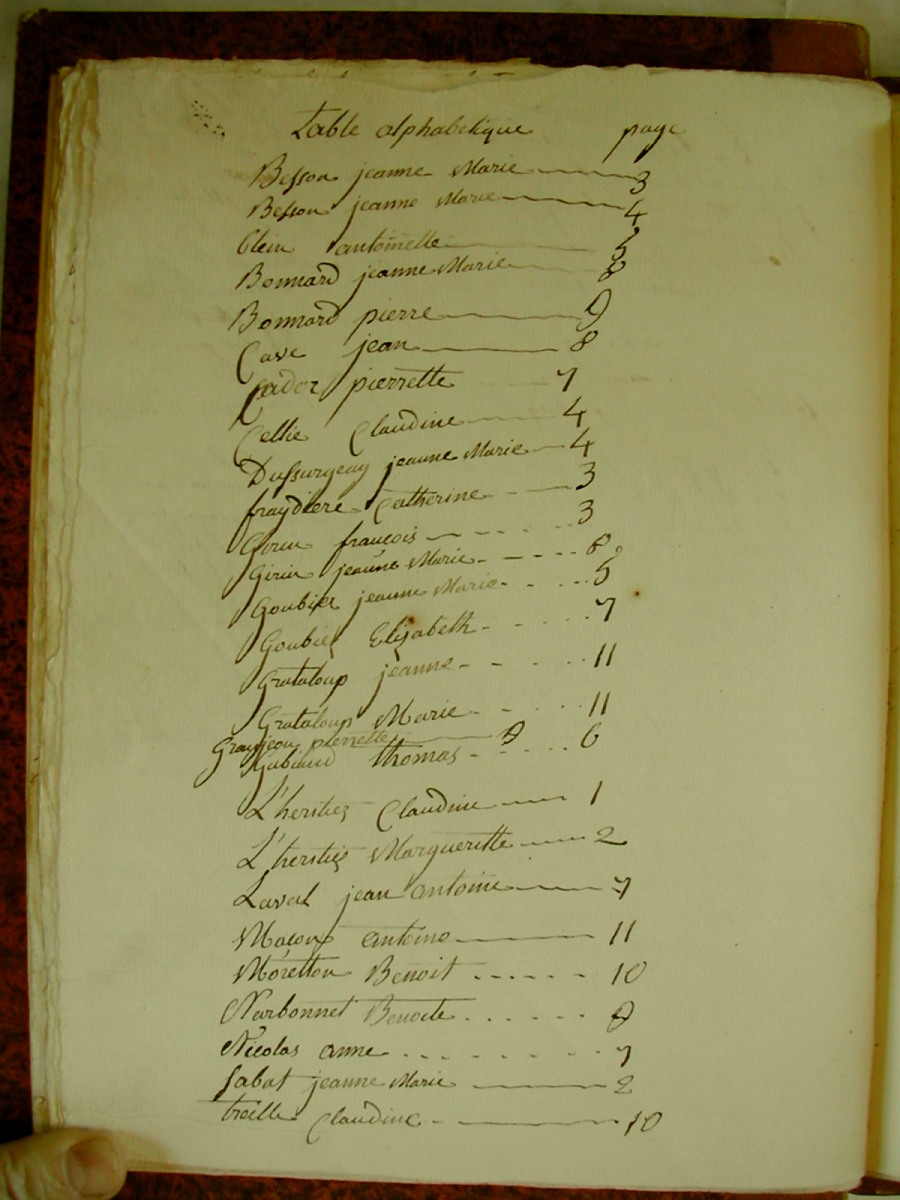 Table alphabetique page
Besson jeanne Marie 3
Besson jeanne Marie 4
blein antoinette 5
Bonnard jeanne Marie 8
Bonnard pierre 9
Cave jean 8
Cador pierrette 7
Cellie Claudine 4
Dussurgey jeanne Marie 4
fraydiere Catherine 3
Girin francois 3
Girin jeanne Marie 8
Goubier jeanne Marie 5
Goubier Elizabeth 7
Grataloup jeanne 11
Grataloup Marie 11
Granjeon pierrette 9
thomas 6
L'heritier Claudine 1
L'heritier Margueritte 2
Laval jean antoine 7
Macon antoine 11
Moretton Benoit 10
Narbonnet Benoite 9
Nicolas anne 7
Sabat jeanne Marie 2
treille Claudine 10